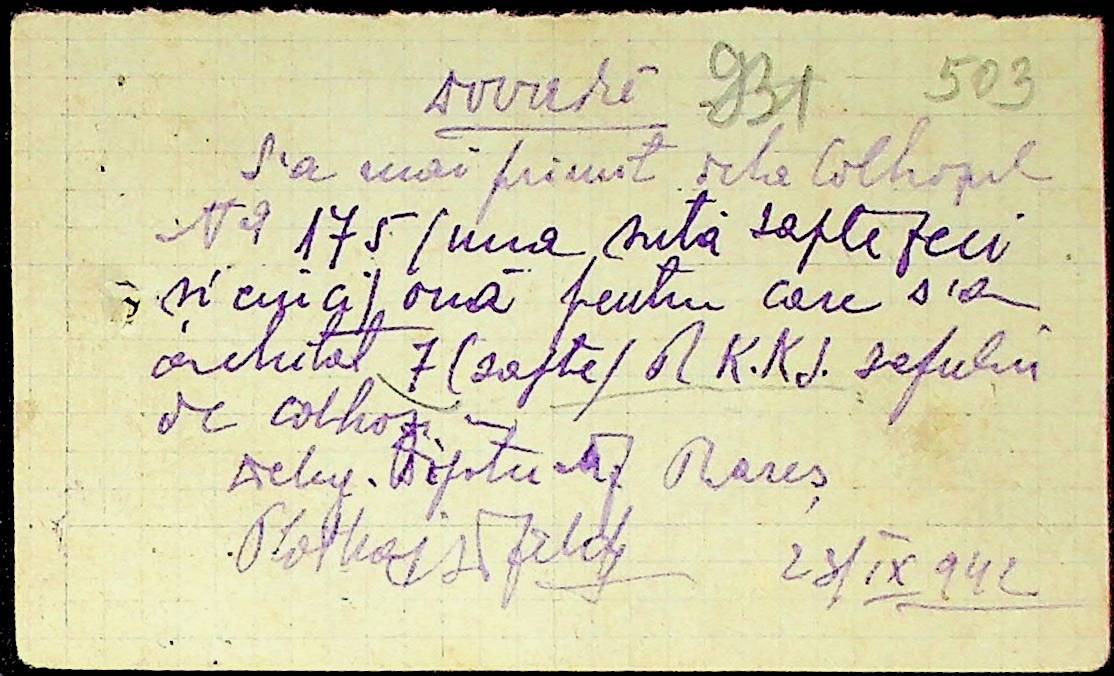 Dovadă 931 503
S'a mai primit dela Colhozul
No 175 (una sută șapte zeci
si cinci) ouă pentru care s'a
achitat 7 (șapte) R.K.K.S. sefului
de colhoz
Rareș
23/IX 942